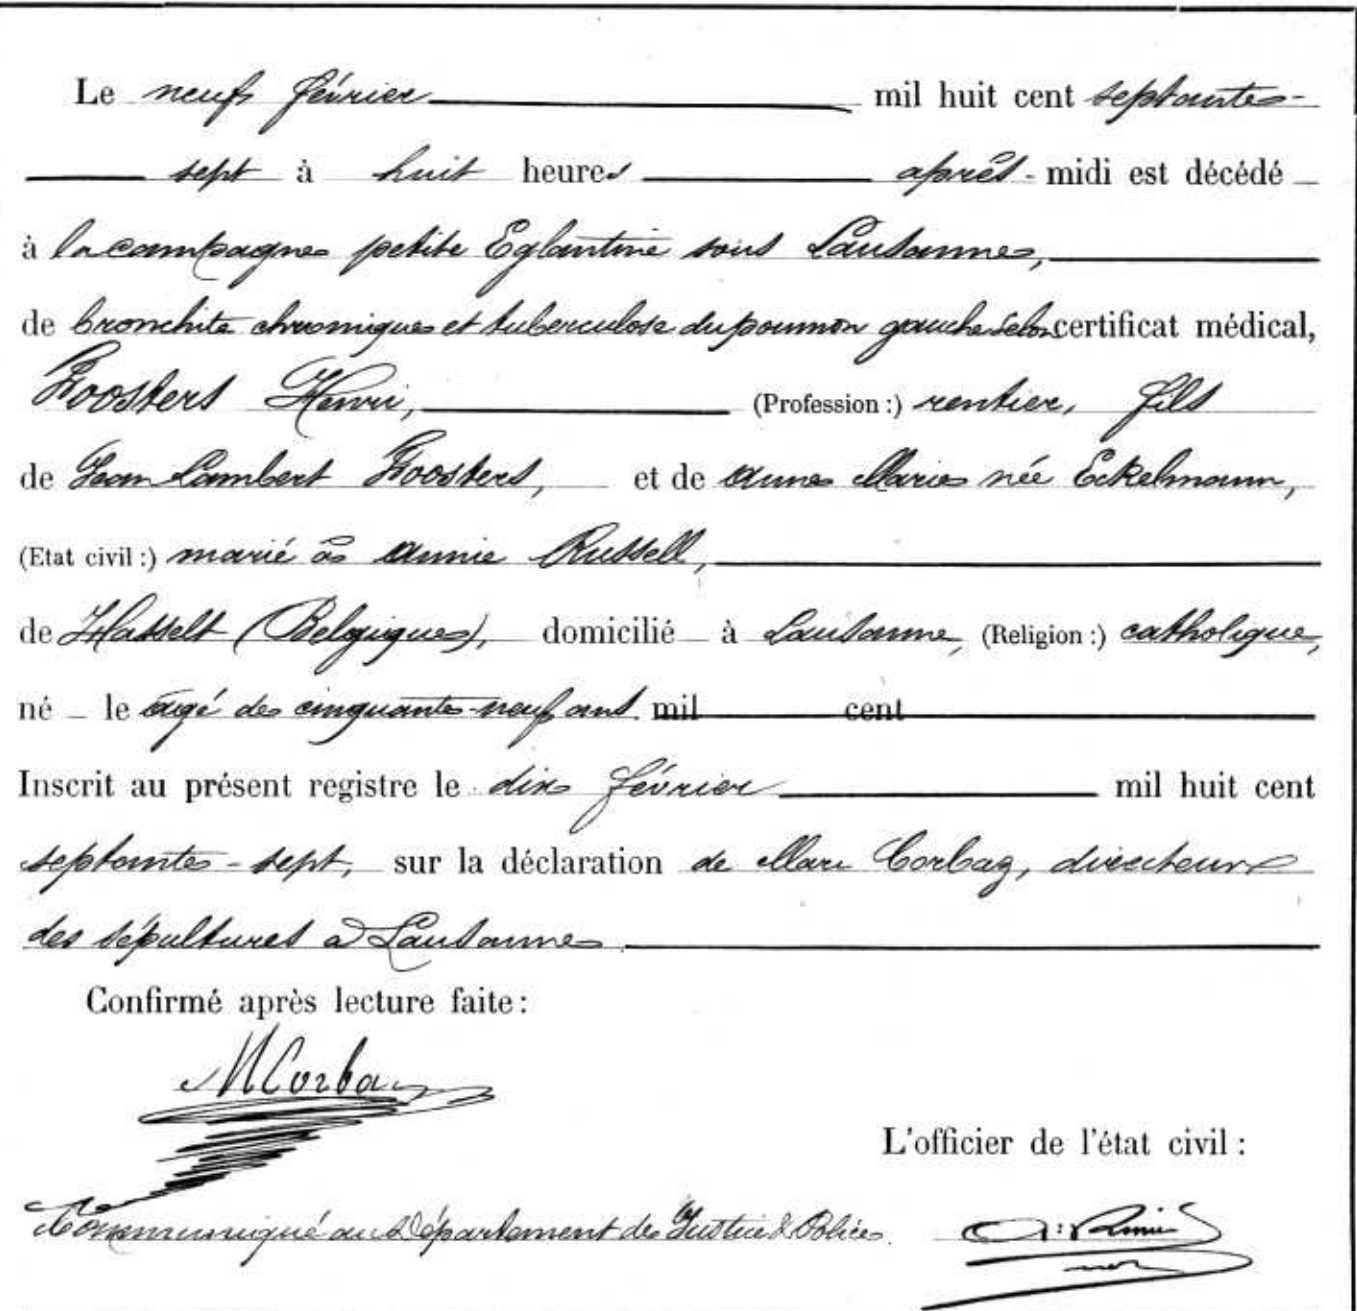 Le neuf février mil huit cent septante-
sept à huit heures après-midi est décédé
à la campagne petite Eglantine sous Lausanne,
de bronchite chronique et tuberculose du poumon gauche selon certificat médical,
Froosters Henri, (Profession:) rentier, fils
de Jean Lambert Froosters, et de Anne Marie née Eckelmann,
(Etat civil:) marié à Annie Russell,
de Hasselt (Belgique), domicilié à Lausanne, (Religion:) catholique,
né le âgé de cinquante-neuf ans. mil cent
Inscrit au présent registre le dix février mil huit cent
septante-sept, sur la déclaration de Marc Corbaz, directeur
des sépultures à Lausanne
Confirmé après lecture faite:
M Corbaz
L'officier de l'état civil:
Communiqué au Département de Justice & Police.